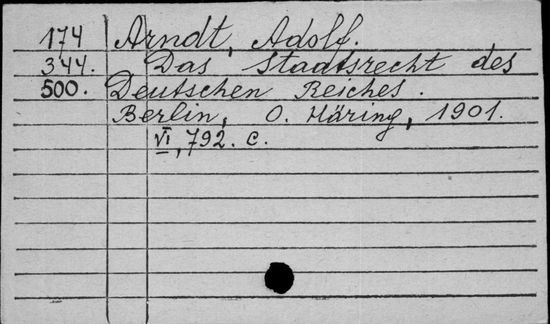 174 Arndt, Adolf.
344. Das Staatsrecht des
500. Deutschen Reiches.
Berlin, O. Häring, 1901.
VI, 792. c.